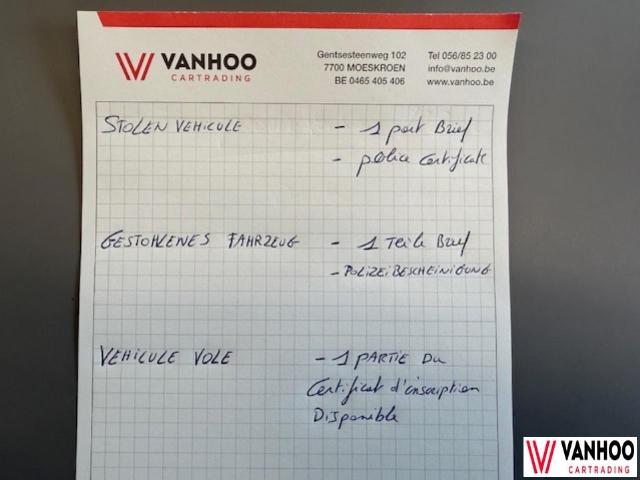 VANHOO
CARTRADING
Gentsesteenweg 102
7700 MOESKROEN
BE 0465 405 406
Tel 056/85 23 00
info@vanhoo.be
www.vanhoo.be
STOLEN VEHICULE - 1 part Brief
- police certificate
GESTOHLENES FAHRZEUG - 1 Teile Brief
- POLIZEIBESCHEINIGUNG
VEHICULE VOLE - 1 PARTIE DU
Certificat d'inscription
Disponible
VANHOO
CARTRADING